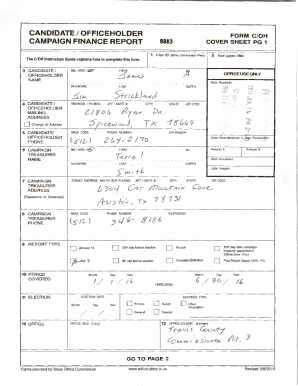 CANDIDATE / OFFICEHOLDER
CAMPAIGN FINANCE REPORT
5883
FORM C/OH
COVER SHEET PG 1
The C/OH Instruction Guide explains how to complete this form.
1 Filer ID (Ethics Commission Filers)
2 Total pages filed:
3 CANDIDATE / OFFICEHOLDER NAME
MS / MRS / MR FIRST MI
James
NICKNAME LAST SUFFIX
Jim Strickland
OFFICE USE ONLY
Date Received
4 CANDIDATE / OFFICEHOLDER MAILING ADDRESS
Change of Address
ADDRESS / PO BOX; APT / SUITE #; CITY; STATE; ZIP CODE
21804 Ryan Dr
Spicewood, TX 78669
5 CANDIDATE / OFFICEHOLDER PHONE
AREA CODE PHONE NUMBER EXTENSION
(512) 264-2170
Date Hand-delivered or Date Postmarked
6 CAMPAIGN TREASURER NAME
MS / MRS / MR FIRST MI
NICKNAME LAST SUFFIX
Smith
Receipt # Amount $
Date Processed
Date Imaged
7 CAMPAIGN TREASURER ADDRESS
(Residence or Business)
STREET ADDRESS (NO PO BOX PLEASE); APT / SUITE #; CITY; STATE; ZIP CODE
6304 Cat Mountain Cove
Austin, TX 78731
8 CAMPAIGN TREASURER PHONE
AREA CODE PHONE NUMBER EXTENSION
(512) 346-8186
9 REPORT TYPE
January 15
30th day before election
Runoff
15th day after campaign treasurer appointment (Officeholder Only)
July 15
8th day before election
Exceeded $500 limit
Final Report (Attach C/OH - FR)
10 PERIOD COVERED
Month Day Year
1 / 1 / 16
THROUGH
Month Day Year
6 / 30 / 16
11 ELECTION
ELECTION DATE
Month Day Year
ELECTION TYPE
Primary
Runoff
Other Description
General
Special
12 OFFICE
OFFICE HELD (if any)
13 OFFICE SOUGHT (if known)
Travis County
Commissioner Pct. 3
GO TO PAGE 2
Forms provided by Texas Ethics Commission
www.ethics.state.tx.us